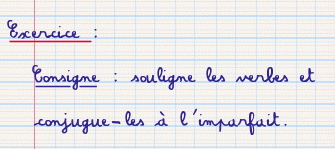 Exercice :
Consigne : souligne les verbes et
conjugue-les à l'imparfait.